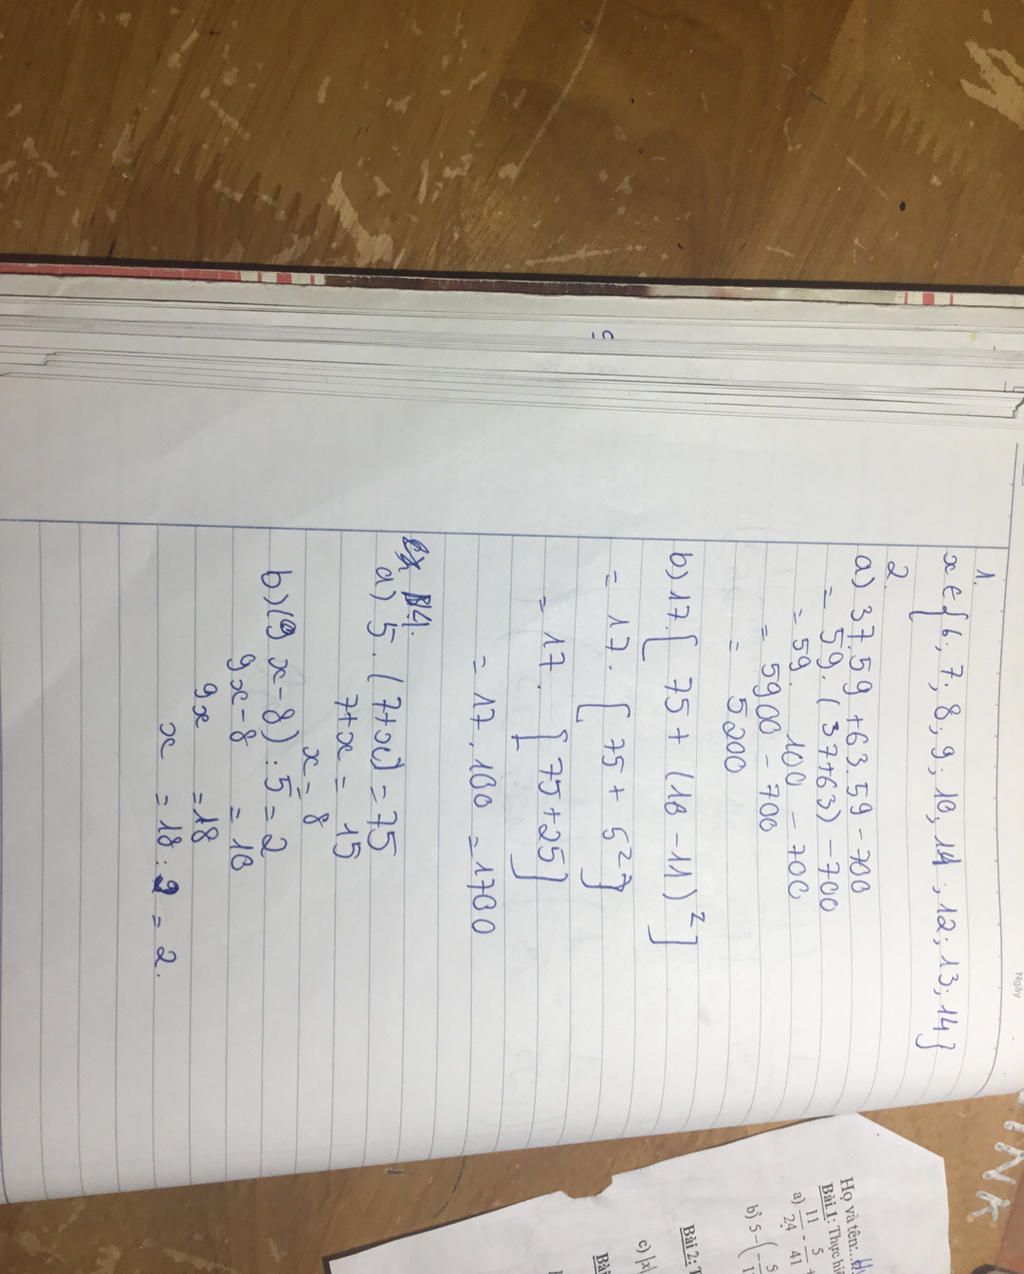 Ngày
1.
x ∈ { 6; 7; 8; 9; 10, 11; 12; 13; 14 }
2.
a) 37.59 + 63.59 - 700
= 59. (37+63) - 700
= 59. 100 - 700
= 5900 - 700
= 5200
b) 17. [ 75 + (16 - 11)² ]
= 17. [ 75 + 5² ]
= 17. [ 75 + 25 ]
= 17. 100 = 1700
4.
a) 5. (7+x) = 75
7+x = 15
x = 8
b) (9x-8) : 5 = 2
9x-8 = 10
9x = 18
x = 18 : 9 = 2.
Họ và tên:
Bài 1: Thực hi
a) 11/24 - 5/41 +
b) 5 - (-5/1
Bài 2: T
c) |x|
Bài